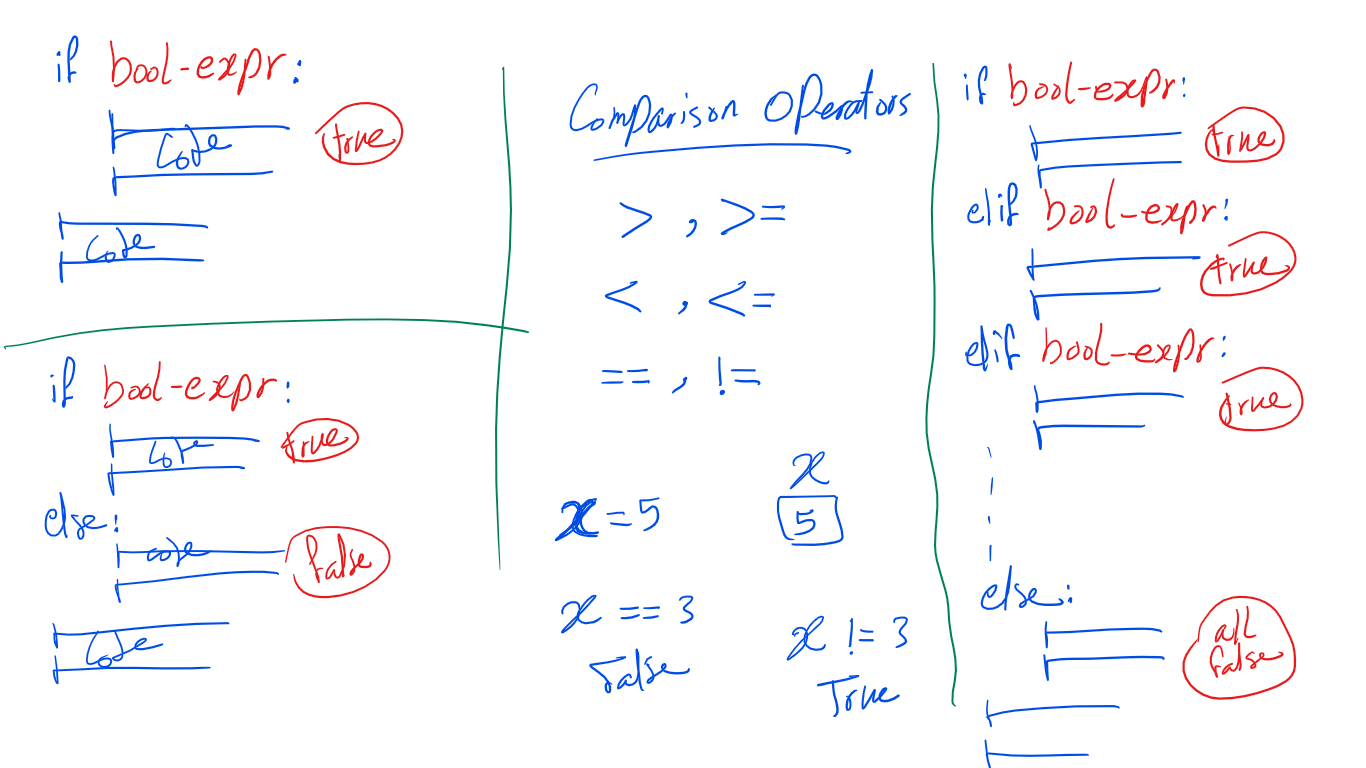 if bool-expr:
Code true
Code
if bool-expr:
Code true
else:
code false
Code
Comparison Operators
> , >=
< , <=
== , !=
x
x = 5 5
x == 3 x != 3
False True
if bool-expr:
true
elif bool-expr:
true
elif bool-expr:
true
else:
all
false